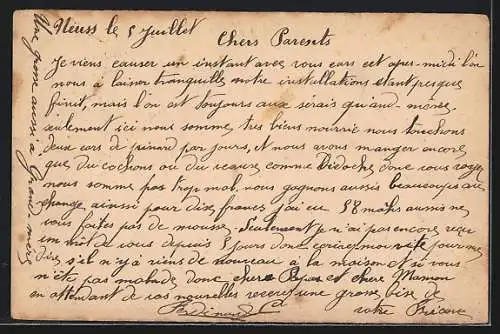 Neuss le 5 Juillet
Chers Parents
Je viens causer un instant avec vous cars cet apres-midi l'on
nous a laisser tranquilles notre installations etant presque
finit, mais l'on est toujours aux serais quand-même,
seulement ici nous somme tres biens nourrit nous touchons
deux cars de pinard par jours, et nous avons manger encore
que du cochons ou du veaux comme Bidoche donc vous voyez
nous somme pas trop mal, nous gagnons aussis beaucoups au
change ainssi pour dix francs j'ai eu 58 maks aussis ne
vous faites pas de mousse. Seulement je n'ai pas encore reçu
un mot de vous depuis 5 jours donc ecrirez moi vite pour me
dire s'il n'y a riens de nouveau a la maison et si vous
n'ete pas malade donc chers Papas et chere Maman
en attendant de vos nouvelles recever une grosse bise de
votre
Une grosse aussi a Grand mere